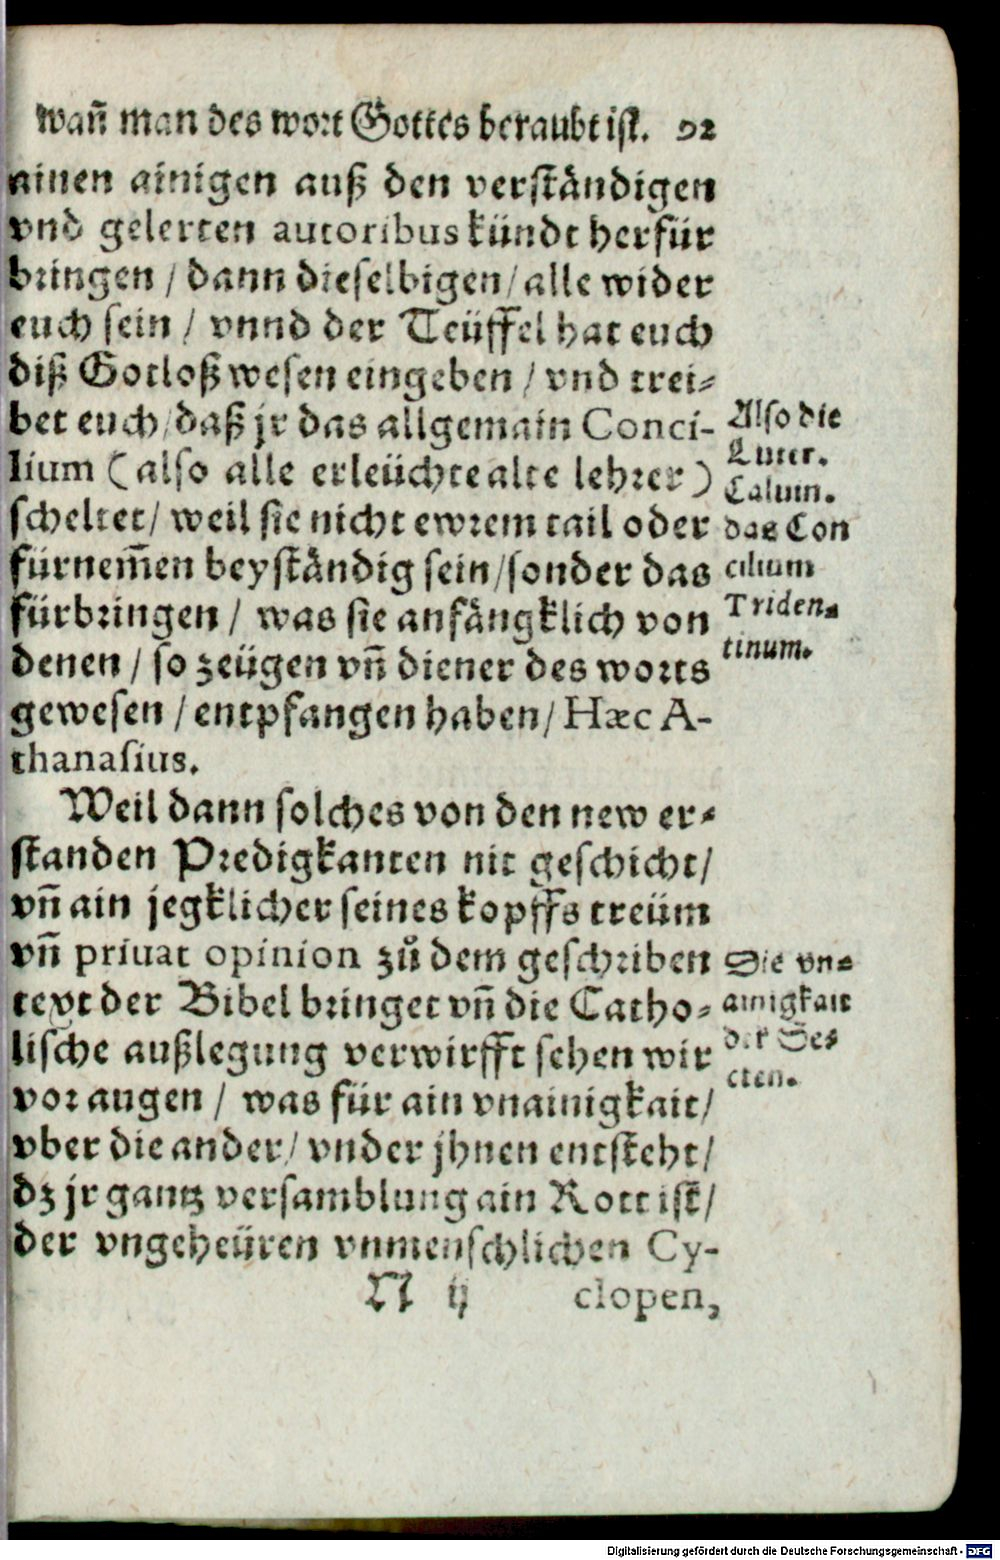 wañ man des wort Gottes beraubt ist. 92
ainen ainigen auß den verständigen
vnd gelerten autoribus kündt herfür
bringen / dann dieselbigen / alle wider
euch sein / vnnd der Teüffel hat euch
diß Gotloß wesen eingeben / vnd trei⸗
bet euch / daß jr das allgemain Conci-
lium (also alle erleüchte alte lehrer)
scheltet / weil sie nicht ewrem tail oder
fürnem̃en beyständig sein / sonder das
fürbringen / was sie anfängklich von
denen / so zeügen vñ diener des worts
gewesen / entpfangen haben / Hæc A-
thanasius.
Also die
Luter.
Caluin.
das Con
cilium
Triden⸗
tinum.
Weil dann solches von den new er⸗
standen Predigkanten nit geschicht /
vñ ain jegklicher seines kopffs treüm
vñ priuat opinion zů dem geschriben
text der Bibel bringet vñ die Catho⸗
lische außlegung verwirfft sehen wir
vor augen / was für ain vnainigkait /
vber die ander / vnder jhnen entsteht /
dz jr gantz versamblung ain Rott ist /
der vngeheüren vnmenschlichen Cy-
Die vn⸗
ainigkait
der Se⸗
cten.
N ij clopen,
Digitalisierung gefördert durch die Deutsche Forschungsgemeinschaft - DFG